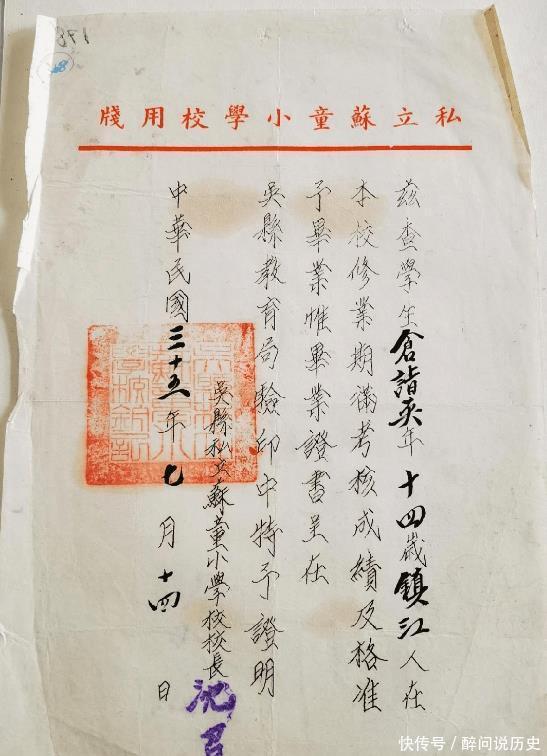 私立蘇童小學校用牋
茲查學生倉詣奕年十四歲鎮江人在
本校修業期滿考核成績及格准
予畢業惟畢業證書呈在
吳縣教育局驗印中特予證明
吳縣私立蘇童小學校校長
中華民國三十五年七月十四日
快传号/醉问说历史